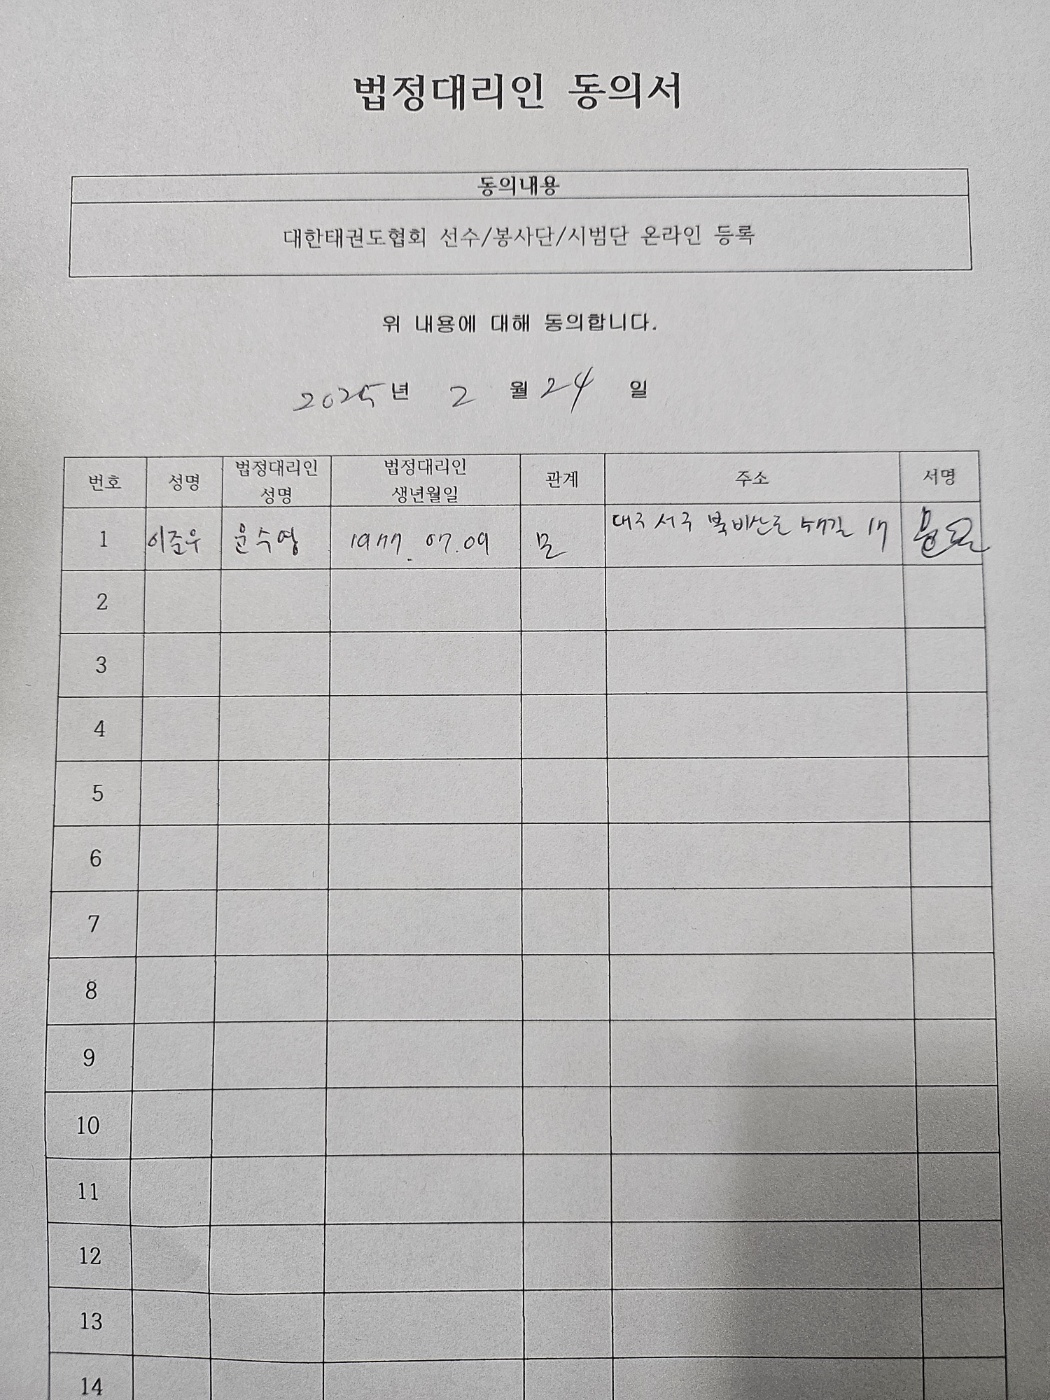 법정대리인 동의서
동의내용
대한태권도협회 선수/봉사단/시범단 온라인 등록
위 내용에 대해 동의합니다.
2025년 2 월 24 일
번호 성명 법정대리인 성명 법정대리인 생년월일 관계 주소 서명
1 이준우 윤수영 1977.07.09 모 대구 서구 북비산로 길 17
2
3
4
5
6
7
8
9
10
11
12
13
14